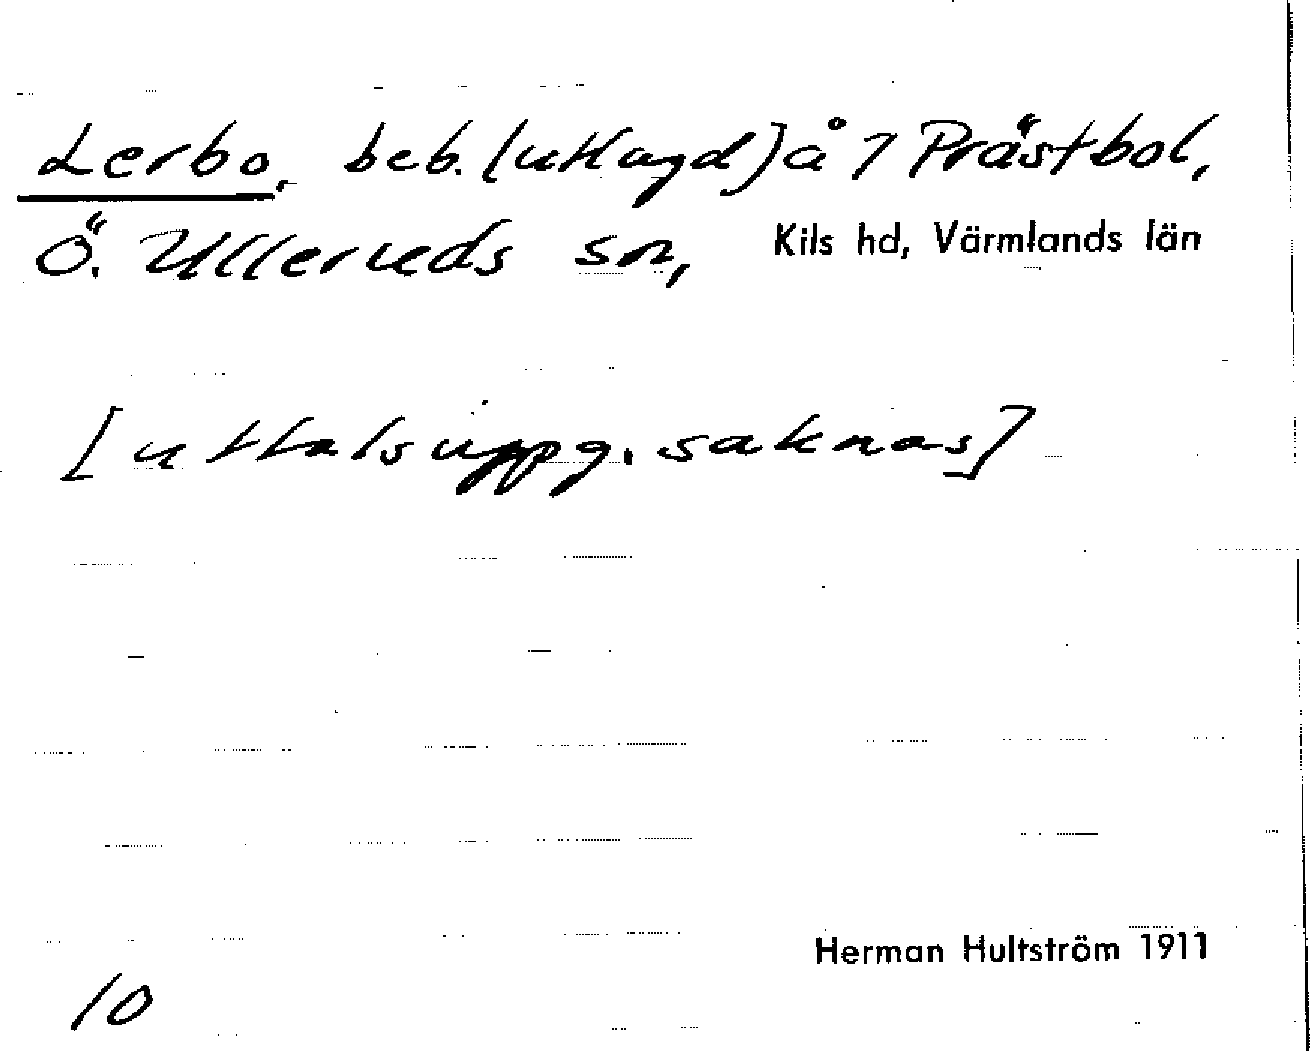 Lerbo, beb. (utlagd) å 7 Prästbol,
Ö. Ullerveds sn, Kils hd, Värmlands län
[uttalsuppg. saknas]
Herman Hultström 1911
10